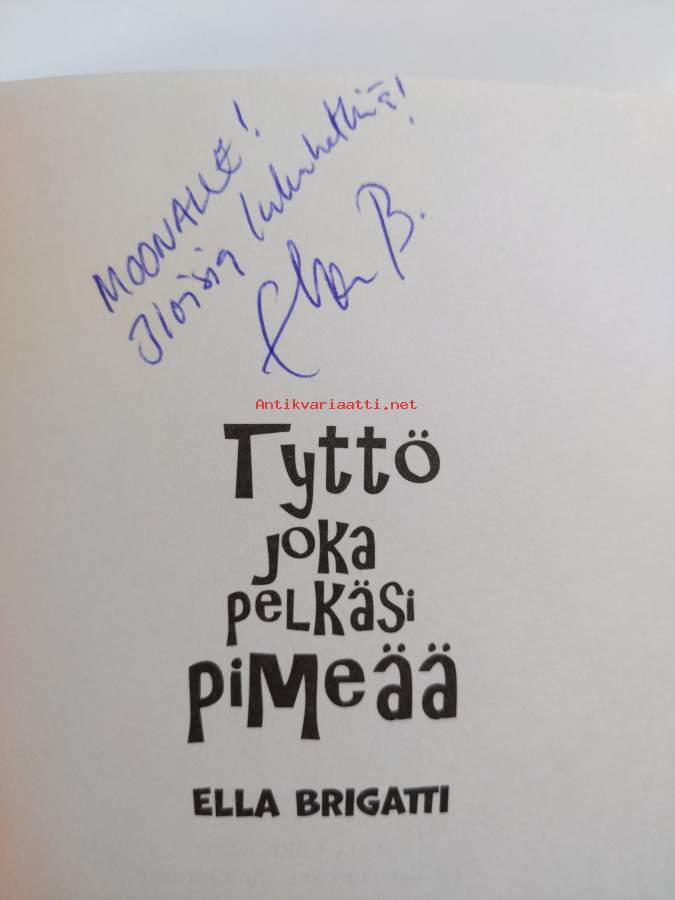 MOONALLE!
Iloisia lukuhetkiä!
Ella B.
Antikvariaatti.net
Tyttö
joka
pelkäsi
pimeää
ELLA BRIGATTI